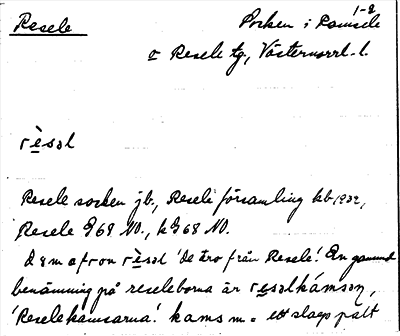 Resele
1-2
Socken i Ramsele
o Resele tg, Västernorrl. l.
rèsəl
Resele socken jb., Resele församling kb 1932,
Resele G68 NO., kG68 NO.
dæm a fron rèsəl 'de äro från Resele'. En gammal
benämning på reseleborna är rèsəlkámsən,
'Reselekamsarna'. kams m. = ett slags palt